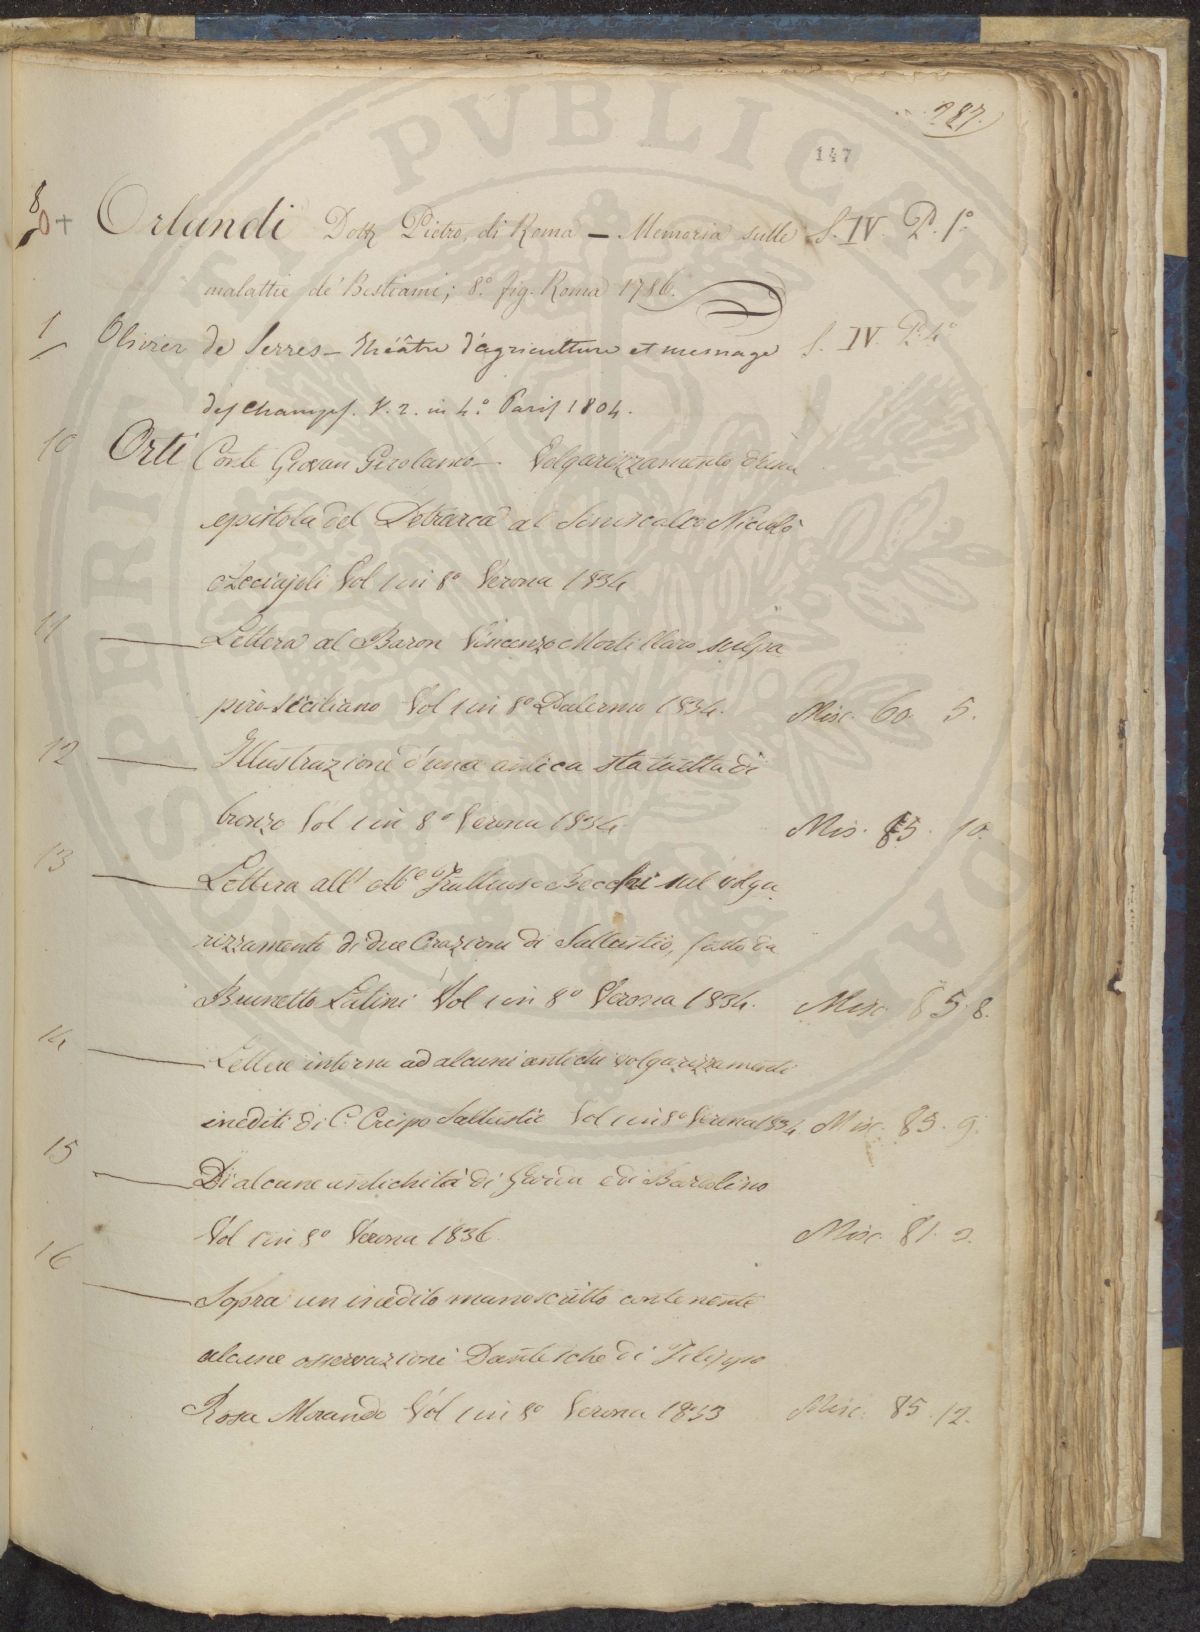 287.
147
8 Orlandi Dott. Pietro, di Roma — Memoria sulle S. IV. P. 1º
malattie de' Bestiami; 8º. fig. Roma 1786.
1 Olivier de Serres — théâtre d'agriculture et mesnage S. IV P. 4º
des champs. V. 2. in 4º. Paris 1804.
10 Orti Conte Giovan Girolamo — Volgarizzamento d'una
epistola del Petrarca al Siniscalco Nicolò
Acciajoli Vol 1 in 8º Verona 1834
11 — Lettera al Baron Vincenzo Mortillaro sul pa
piro siciliano Vol 1 in 8º Palermo 1834. Misc. 60. 5.
12 — Illustrazione d'una antica statuetta di
bronzo Vol 1 in 8º Verona 1834 Mis. 85. 10.
13 — Lettera all' Ab.e Fruttuoso Becchi sul volga
rizzamento di due Orazioni di Sallustio, fatto da
Brunetto Latini Vol 1 in 8º Verona 1834. Misc. 85. 8.
14 — Lettere intorno ad alcuni antichi volgarizzamenti
inediti di C. Crispo Sallustio Vol 1 in 8º Verona 1834 Misc. 85. 9.
15 — Di alcune antichità di Garda e di Bardolino
Vol 1 in 8º Verona 1836 Misc. 81. 2.
16 — Sopra un inedito manoscritto contenente
alcune osservazioni Dantesche di Filippo
Rosa Morando Vol 1 in 8º Verona 1833 Misc. 85. 12.